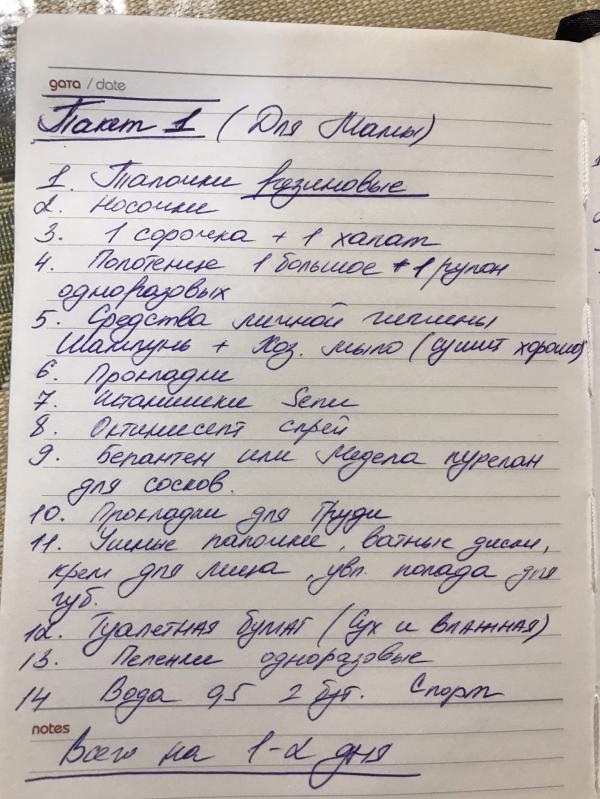 дата / date
Пакет 1 (Для Мамы)
1. Тапочки резиновые
2. Носочки
3. 1 сорочка + 1 халат
4. Полотенце 1 большое + 1 рулон
одноразовых
5. Средства личной гигиены
Шампунь + Хоз. мыло (сушит хорошо)
6. Прокладки
7. Штанишки Seni
8. Октинисепт спрей
9. Бепантен или Медела пурелан
для сосков.
10. Прокладки для Груди
11. Ушные палочки, ватные диски,
крем для лица, увл. помада для
губ.
12. Туалетная бумаг (Сух и влажная)
13. Пеленки одноразовые
14 Вода 0,5 2 бут. Спорт
notes
Всего на 1-2 дня